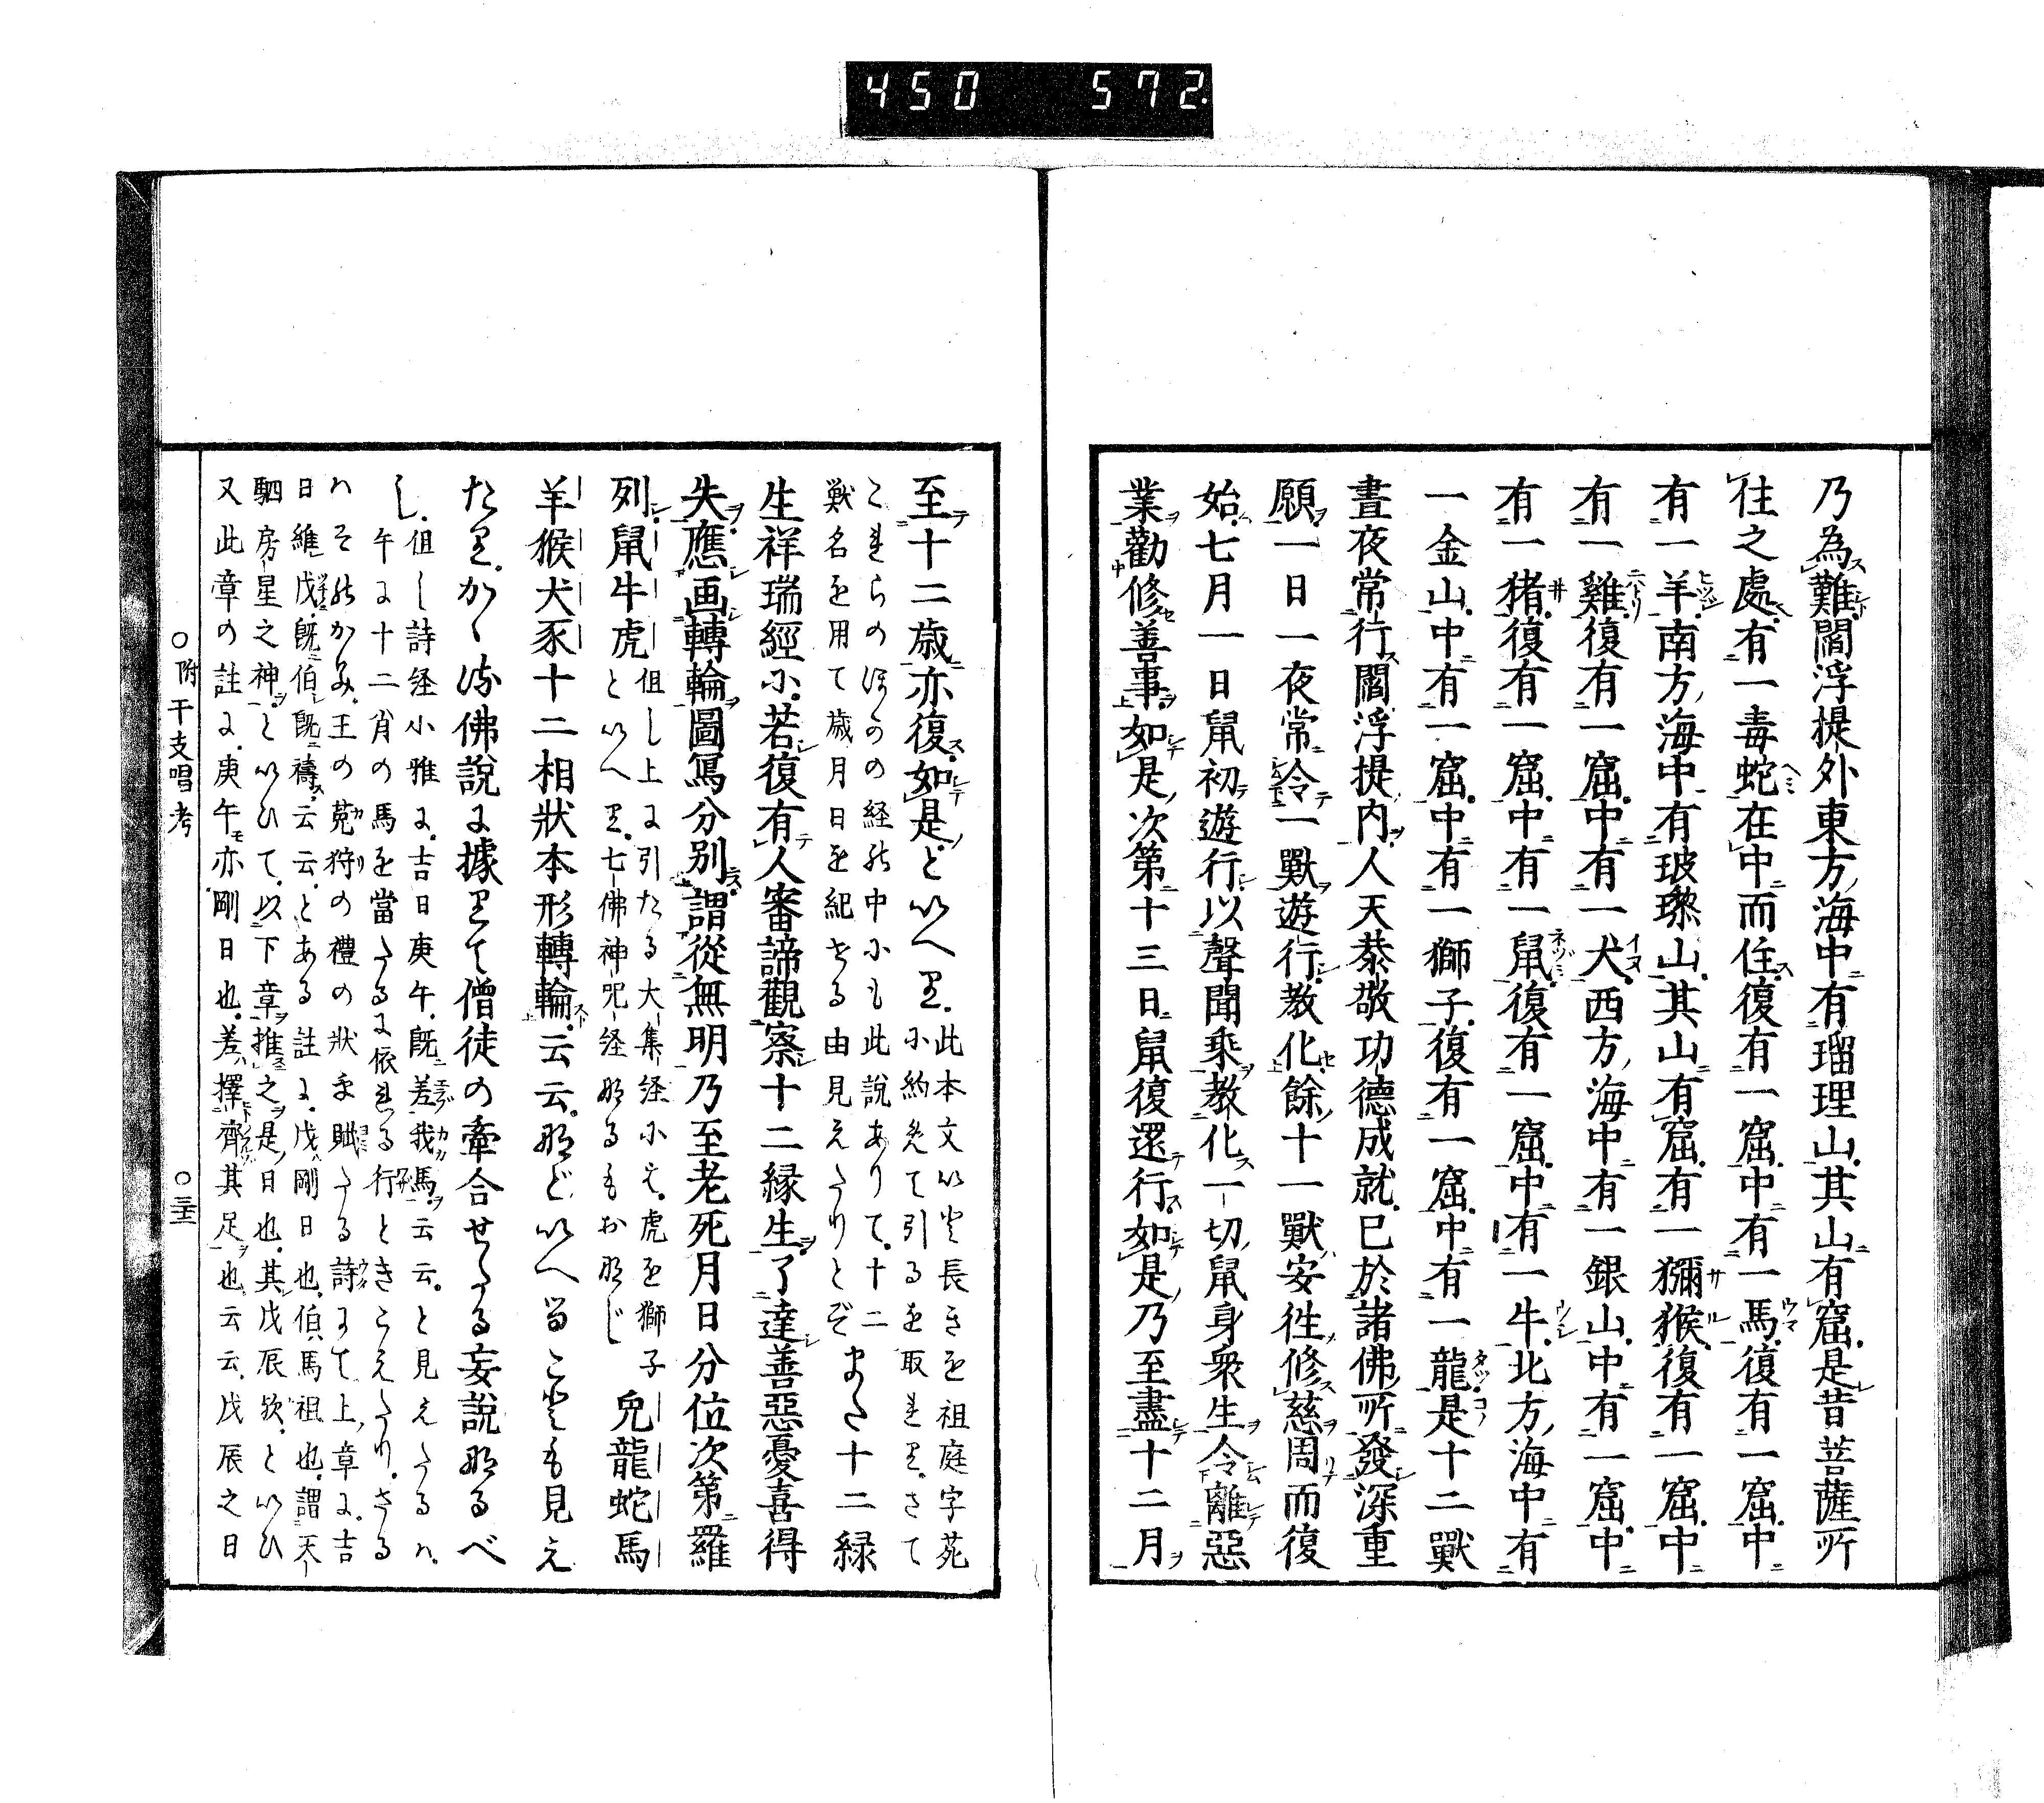 450 572.
乃為難閻浮提外東方海中有瑠理山其山有窟是昔菩薩所
住之處有一毒蛇在中而住復有一窟中有一馬復有一窟中
有一羊南方海中有玻瓈山其山有窟有一獼猴復有一窟中
有一雞復有一窟中有一犬西方海中有一銀山中有一窟中
有一猪復有一窟中有一鼠復有一窟中有一牛北方海中有
一金山中有一窟中有一獅子復有一窟中有一龍是十二獸
晝夜常行閻浮提內人天恭敬功德成就已於諸佛所發深重
願一日一夜常令一獸遊行教化餘十一獸安住修慈周而復
始七月一日鼠初遊行以聲聞乘教化一切鼠身衆生令離惡
業勸修善事如是次第十三日鼠復還行如是乃至盡十二月
至十二歳亦復如是といへり
此本文いと長きを祖庭字苑
に約めて引るを取れりさて
これらのほかの経の中にも此說ありて十二
獸名を用て歳月日を紀せる由見えたりとぞ
また十二緑
生祥瑞經に若復有人審諦觀察十二縁生了達善惡憂喜得
失應画轉輪圖寫分別謂從無明乃至老死月日分位次第羅
列鼠牛虎
但し上に引たる大集経には虎を獅子
といへり七佛神咒経なるもおなじ
兔龍蛇馬
羊猴犬豕十二相狀本形轉輪云云などいへることも見え
たりかゝる佛說に據りて僧徒の牽合せたる妄說なるべ
し
但し詩経小雅に吉日庚午既差我馬云云と見えたるハ
午に十二肖の馬を當たるに依れる行ときこえたりさる
ハそのかみ王の蒐狩の禮の狀を賦たる詩にて上章に吉
日維戊既伯既禱云云とある註に戊剛日也伯馬祖也謂天
駟房星之神といひて以下章推之是日也其戊辰歟といひ
又此章の註に庚午亦剛日也差擇齊其足也云云戊辰之日
○附 干支唱考 ○三十二